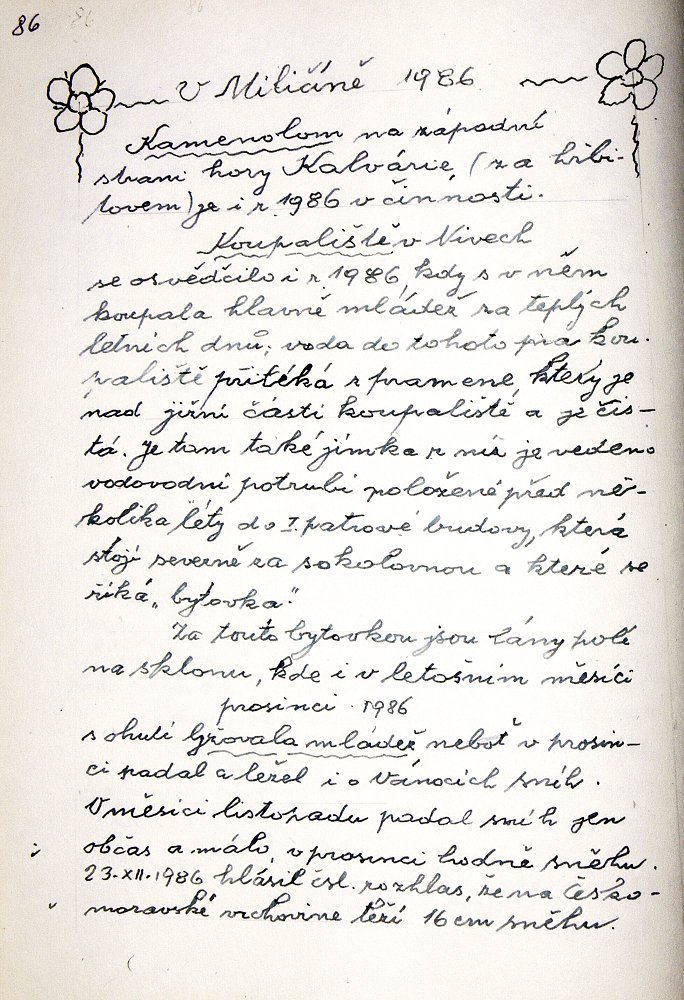 86
V Miličíně 1986
Kamenolom na západní
strani hory Kalvárie (za hřbi-
tovem) je i r. 1986 v činnosti.
Koupaliště v Nivech
se osvědčilo i r. 1986, kdy s v něm
koupala hlavně mládež za teplých
letních dnů; voda do tohoto pra kou-
paliště přitéká z pramene, který je
nad jižní částí koupaliště a je čis-
tá. Je tam také jímka z níž je vedeno
vodovodní potrubí položené před ně-
kolika léty do I. patrové budovy, která
stojí severně za sokolovnou a které se
říká „bytovka".
Za touto bytovkou jsou lány polí
na sklonu, kde i v letošním měsíci
prosinci 1986
s chutí lyžovala mládež neboť v prosin-
ci padal a ležel i o Vánocích sníh.
V měsíci listopadu padal sníh jen
občas a málo, v prosinci hodně sněhu.
23.XII.1986 hlásil čsl. rozhlas, že na Česko-
moravské vrchovine leží 16 cm sněhu.